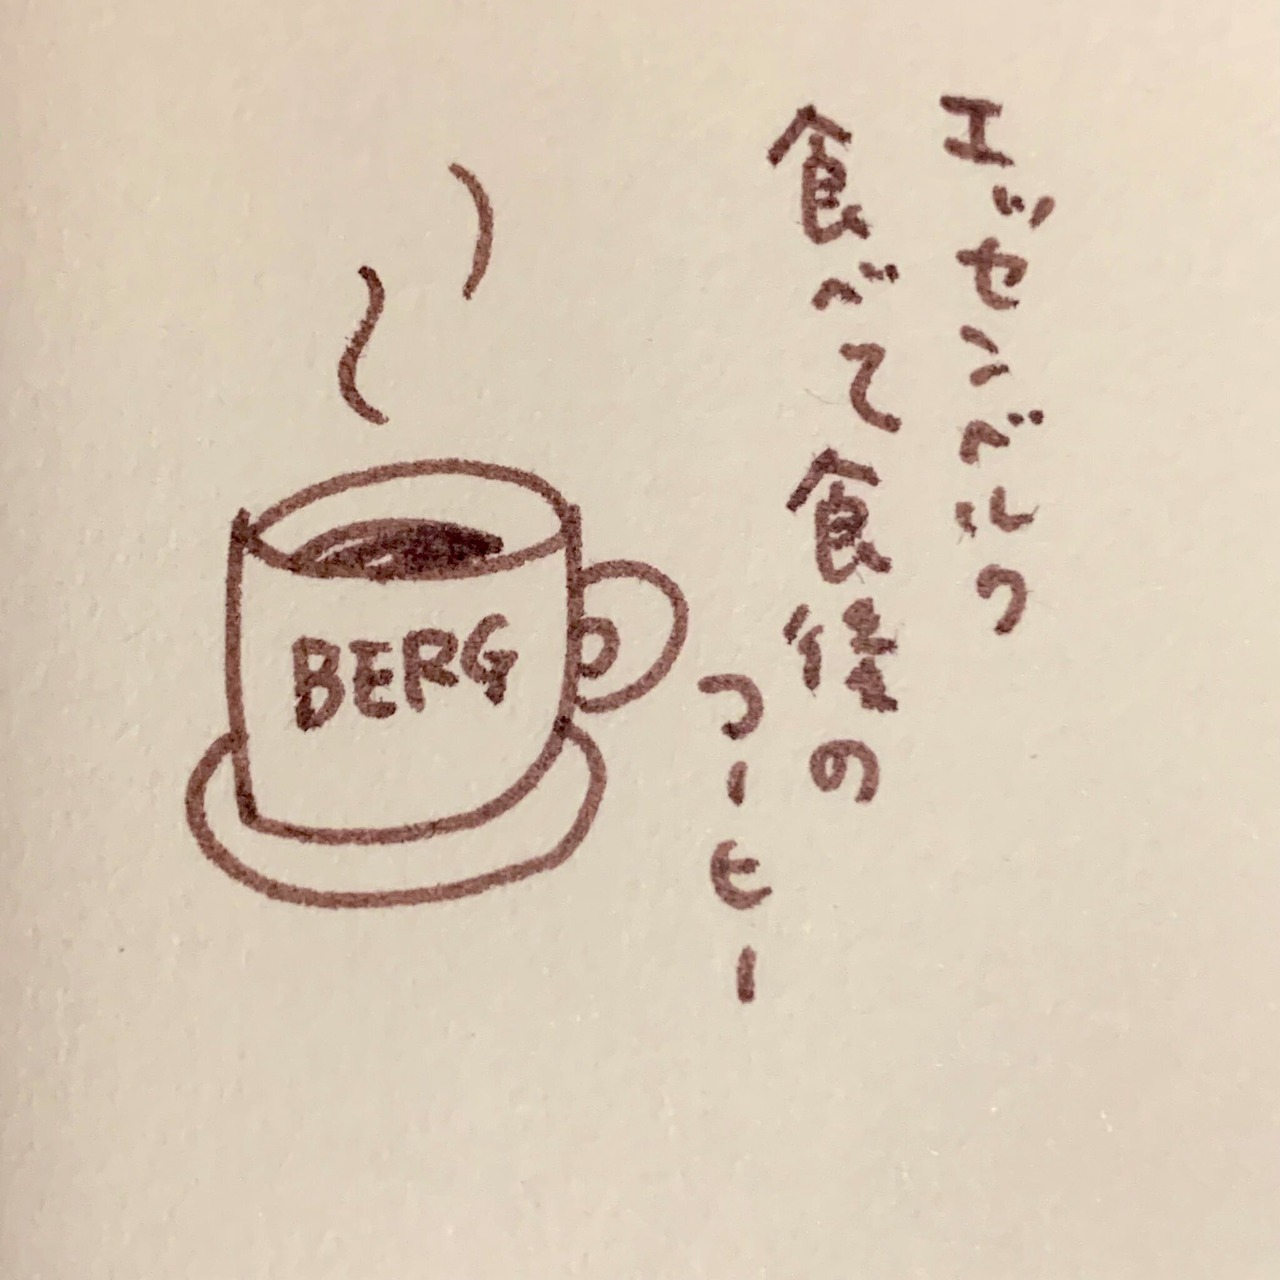 エッセンベルク
食べて食後の
コーヒー
BERG